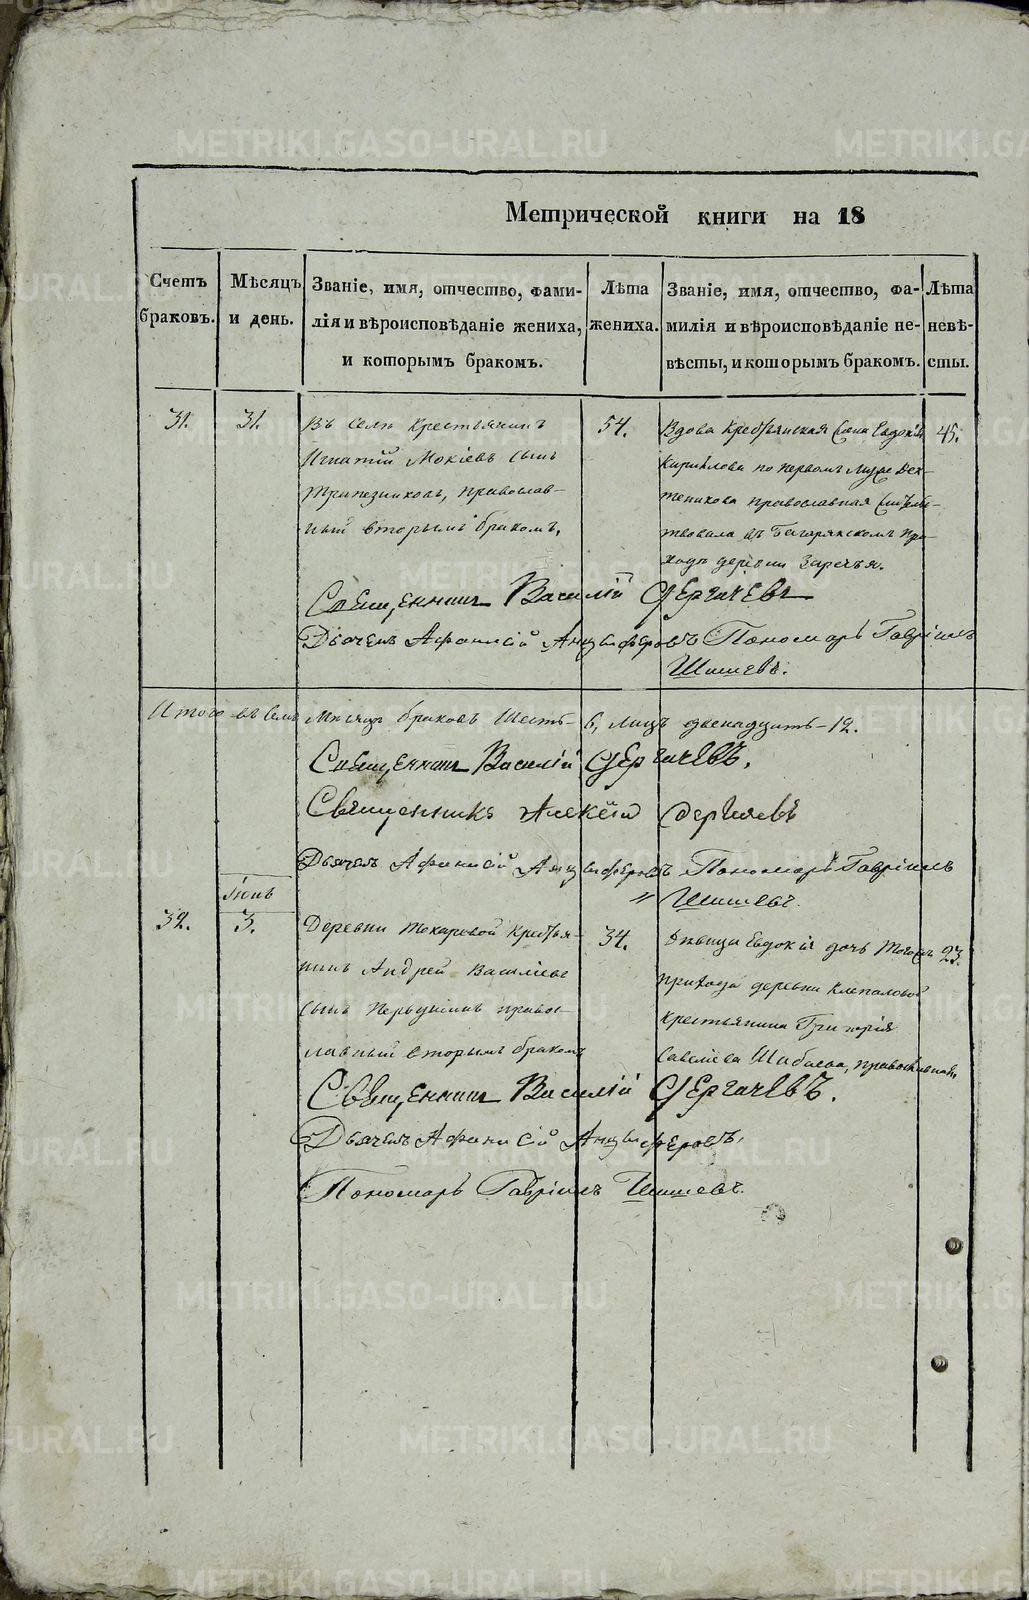 Метрической книги на 18
Счетъ браковъ.
Мѣсяцъ и день.
Званіе, имя, отчество, фами-
лія и вѣроисповѣданіе жениха,
и которымъ бракомъ.
Лѣта жениха.
Званіе, имя, отчество, фа-
милія и вѣроисповѣданіе не-
вѣсты, и которымъ бракомъ.
Лѣта невѣ-
сты.
31.
31.
Въ селѣ Крестьянинъ
Игнатій Мокіевъ сынъ
Трапезниковъ, православ-
ный вторымъ бракомъ.
54.
Вдова Крестьянская Евдокія
Кирилова по первомъ мужѣ
православная
въ Багарякскомъ при-
ходѣ деревни Заречья.
45.
Священникъ Василій Сергачевъ
Дьячекъ Афонасій Анцыферовъ Пономарь Гавріилъ
Шишевъ.
Итого въ семъ Мѣсяцѣ браковъ Шесть - 6, лицъ двенадцать - 12.
Священникъ Василій Сергачевъ.
Священникъ Алексій Сергіевъ
Дьячекъ Афанасій Анцыферовъ Пономарь Гавріилъ
" Шишевъ.
Іюнь
32.
3.
Деревни Токаревой Крестья-
нинъ Андрей Василіевъ
сынъ Первушинъ правос-
лавный вторымъ бракомъ
34.
Дѣвица Евдокія дочь тогожъ
прихода деревни Клепаловой
крестьянина Григорія
Савеліева Шабаева, православная
23.
Священникъ Василій Сергачевъ.
Дьячекъ Афанасій Анцыферовъ,
Пономарь Гавріилъ Шишевъ.
METRIKI.GASO-URAL.RU